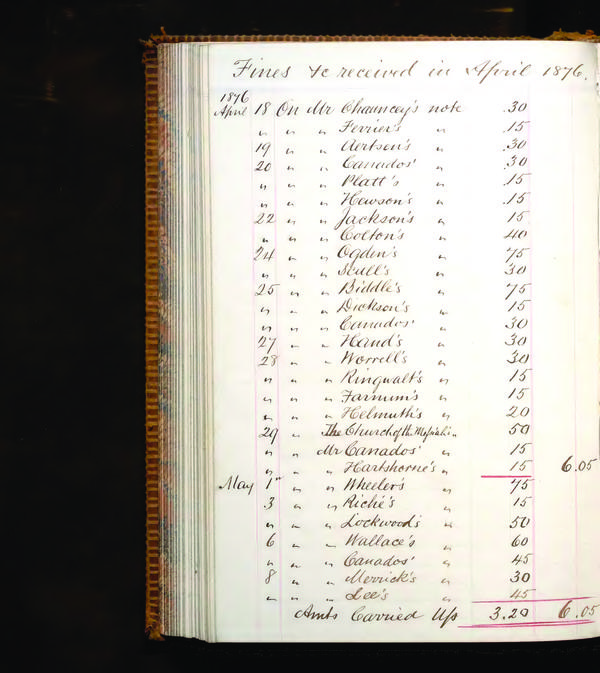 Fines &c received in April 1876.
1876
April 18 On Mr Chauncey's note .30
" " " Ferrier's " .15
19 " " Aertsen's " .30
20 " " Canados' " .30
" " " Platt's " .15
" " " Hewson's " .15
22 " " Jackson's " 15
" " " Colton's " 40
24 " " Ogden's " 75
" " " Scull's " 30
25 " " Biddle's " 75
" " " Dickson's " 15
" " " Canados' " 30
27 " " Hand's " 30
28 " " Worrell's " 30
" " " Ringwalt's " 15
" " " Farnum's " 15
" " " Helmuth's " 20
29 " The Church of the Messiah's " 50
" " Mr Canados' " 15
" " " Hartshorne's " 15 6.05
May 1st " " Wheeler's " 75
3 " " Riché's " 15
" " " Lockwood's " 50
6 " " Wallace's " 60
" " " Canados' " 45
8 " " Merrick's " 30
" " " Lee's " 45
Amts Carried Up 3.20 6.05